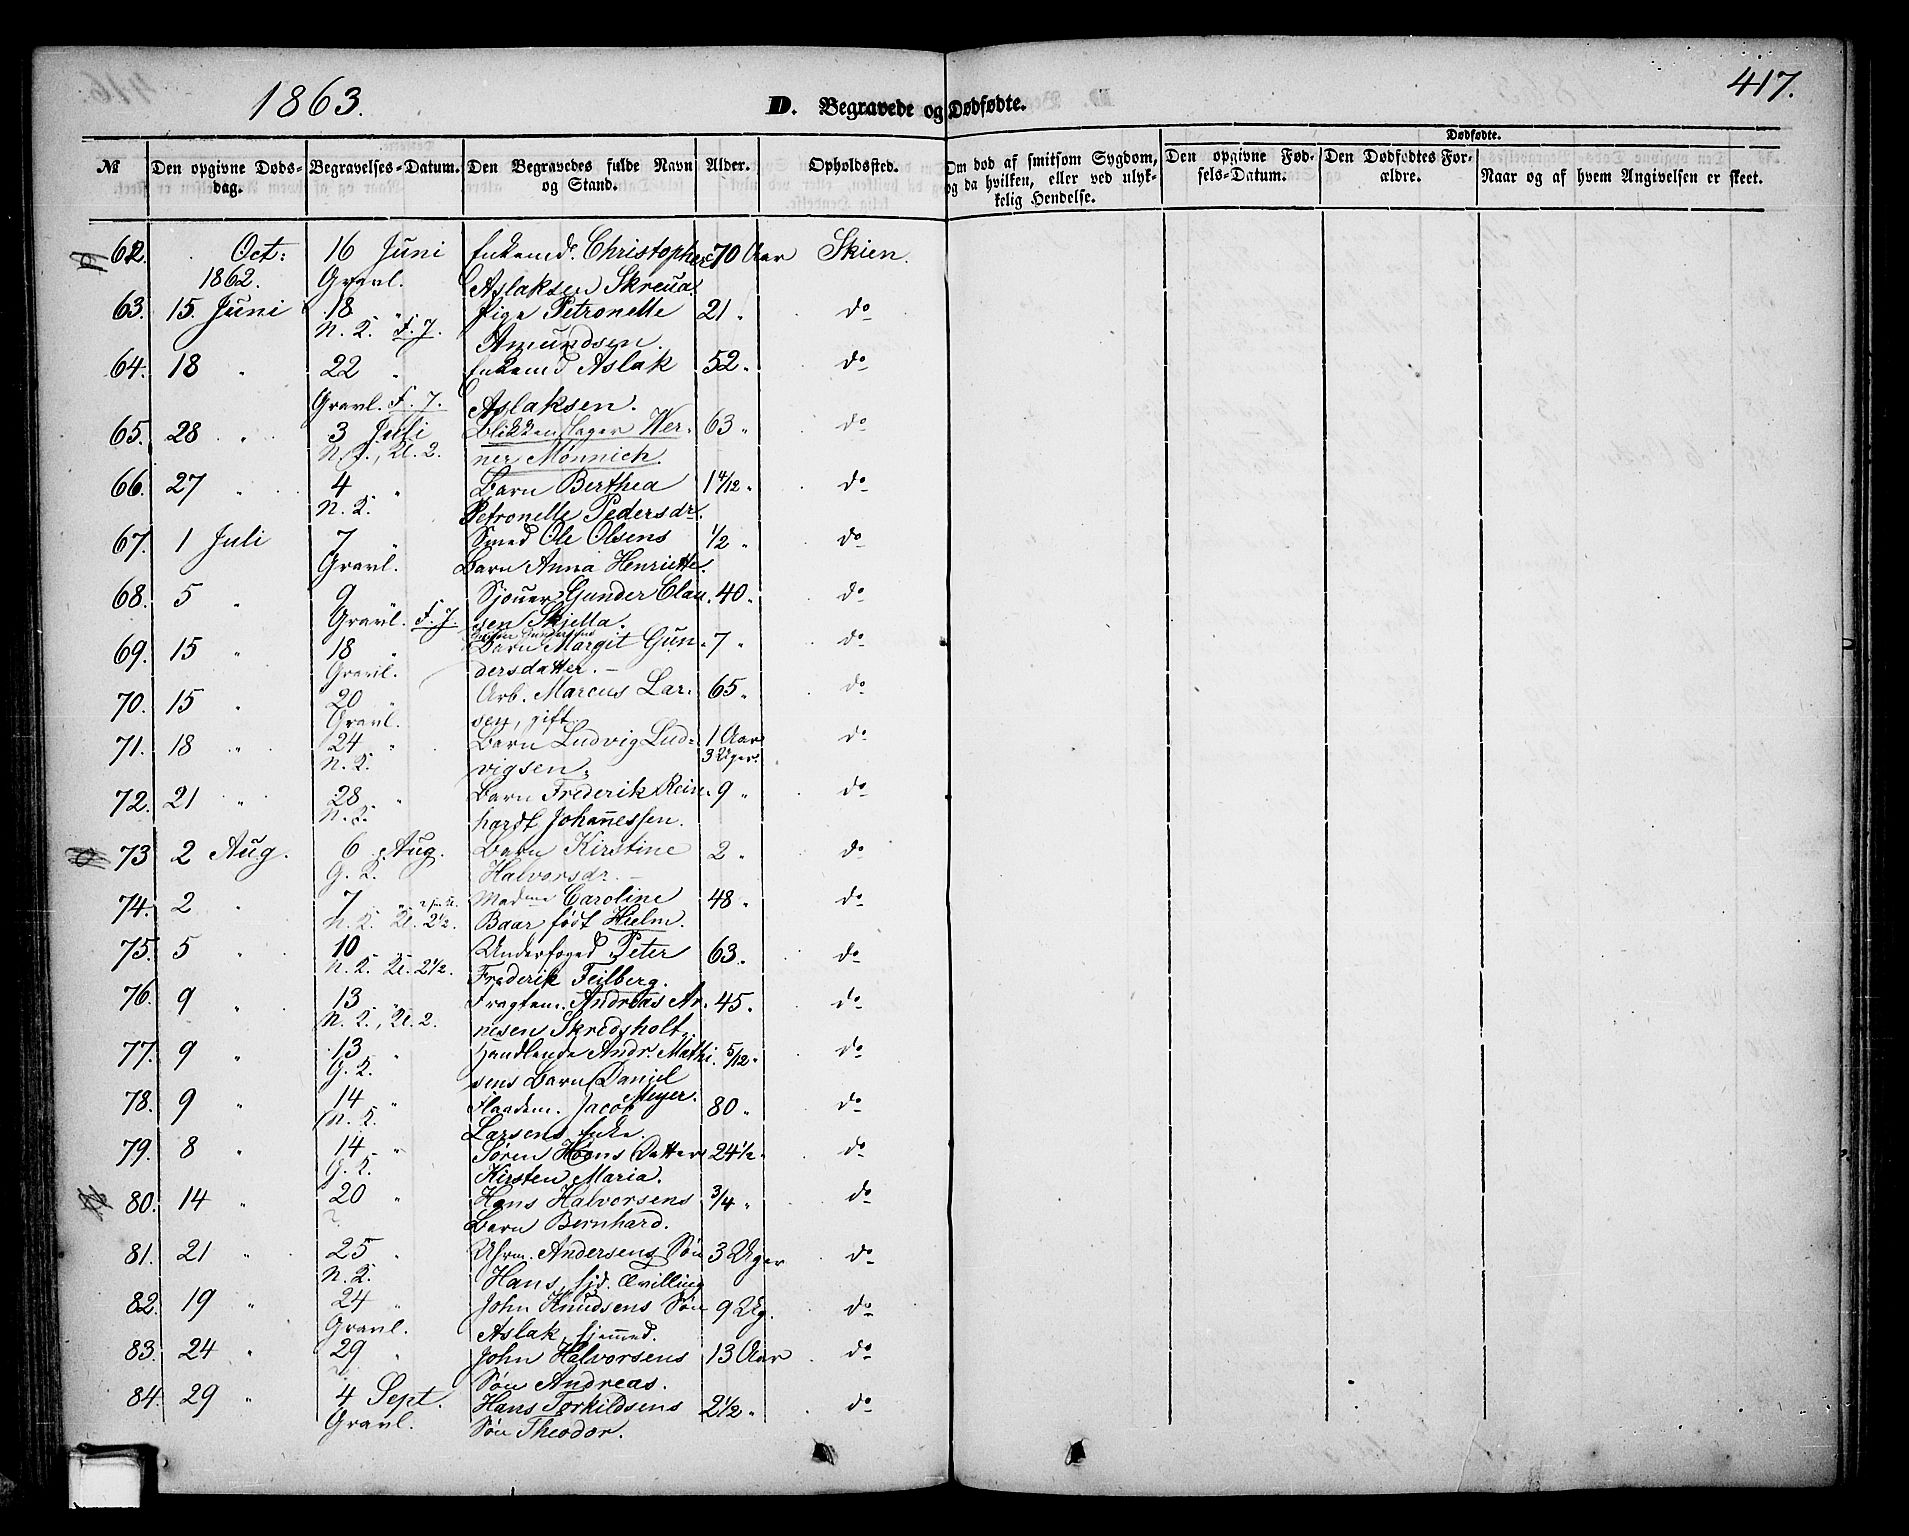 1863.
D. Begravede og Dødfødte.
417.
№
Den opgivne Døds-
dag.
Begravelses-Datum.
Den Begravedes fulde Navn
og Stand.
Alder.
Opholdssted.
Om død af smitsom Sygdom,
og da hvilken, eller ved ulyk-
kelig Hendelse.
Dødfødte.
Den opgivne Fød-
sels-Datum.
Den Dødfødtes For-
ældre.
Naar og af hvem Angivelsen er skeet.
62. Oct: 16 Juni Enkemd. Christopher 70 Aar Skien.
1862. Gravl. Aslaksen Skreua.
63. 15. Juni 18 " Pige Petronelle 21 " do
N. K. F. J. Amundsen.
64. 18 " 22 " Enkemd Aslak 52 " do
Gravl. F. J. Aslaksen.
65. 28 " 3 Juli Blikkenslager Wer- 63 " do
Kl. 2. ner Mønnich.
66. 27 " 4 " Barn Berthea 1 4/12 " do
N. K. Petronelle Pedersdr.
67. 1 Juli 7 " Smed Ole Olsens 1/2 " do
Gravl. Barn Anna Henriette.
68. 5 " 9 " Sjouer Gunder Clau 40 " do
Gravl. F. J. sen Skjella.
69. 15 " 18 " Barn Margit Gun 7 " do
Gravl. dersdatter. —
70. 15 " 20 " Arb. Marcus Lar- 65 " do
Gravl. sen, gift.
71. 18 " 24 " Barn Ludvig Lud- 1 Aar do
N. K. vigsen. 3 Uger.
72. 21 " 28 " Barn Frederik Rein 9 " do
N. K. hardt Johannessen.
73 2 Aug. 6 Aug. Barn Kirstine 2 " do
G. K. Halvorsdr. —
74. 2 " 7 " Madme Caroline 48 " do
N. K. Kl. 2 1/2. Baar født Hielm.
75. 5 " 10 " Underfoged Peter 63 " do
N. K. Kl. 2 1/2. Frederik Feilberg.
76. 9 " 13 " Fragtem. Andreas Ar 45 " do
N. K., Kl. 2. nesen Skredsholt.
77. 9 " 13 " Handlende Andr. Mathi 5/12 " do
G. K. sens Barn Daniel
Meyer.
78. 9 " 14 " Flaadem. Jacob 80 " do
N. K. Larsens Enke.
79. 8 " 14 " Søren Hans Datter 24 1/2 " do
G. K. Kirsten Maria.
80. 14 " 20 " Hans Halvorsens 3/4 " do
? Barn Bernhard.
81. 21 " 25 " Uhrm. Andersens Søn 3 Uger do
N. K. Hans, hjd. Tvilling
82. 19 " 24 " John Knudsens Søn 9 Ug. do
Gravl. Aslak, hjemmed.
83. 24 " 29 " John Halvorsens 13 Aar do
? Søn Andreas.
84. 29 " 4 Sept. Hans Torkildsens 2 1/2 " do
Gravl. Søn Theodor.